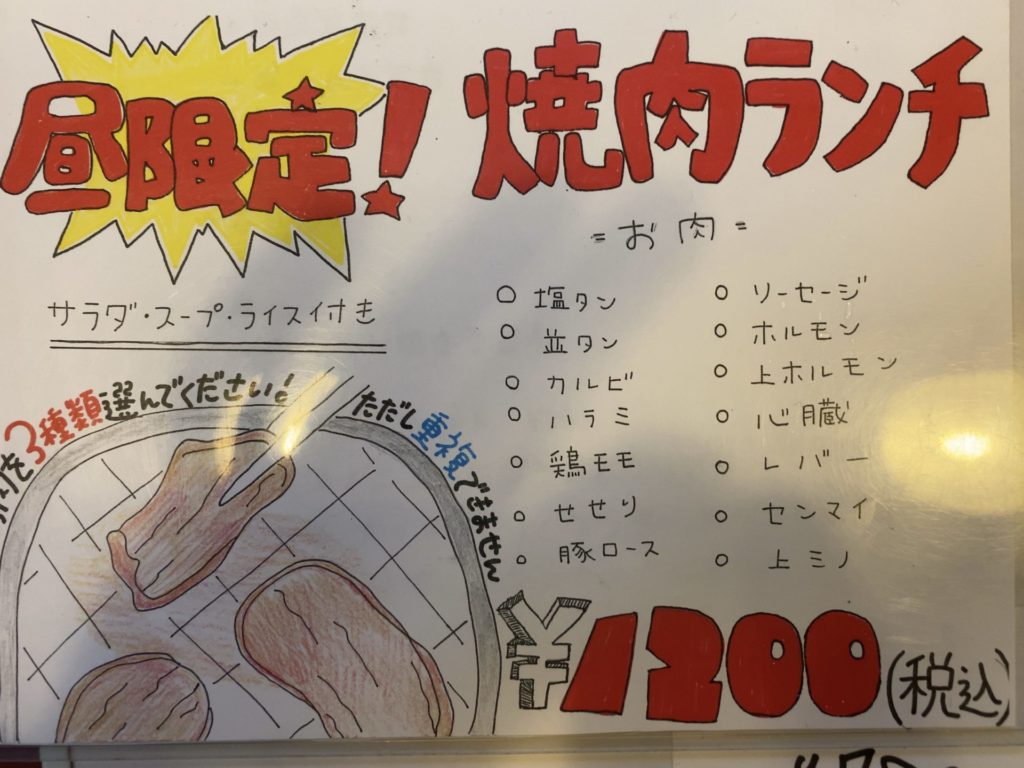 昼限定!
焼肉ランチ
サラダ・スープ・ライス付き
を3種類選んでください!
ただし重複できません
=お肉=
○ 塩タン
○ 並タン
○ カルビ
○ ハラミ
○ 鶏モモ
○ せせり
○ 豚ロース
○ ソーセージ
○ ホルモン
○ 上ホルモン
○ 心臓
○ レバー
○ センマイ
○ 上ミノ
¥1200(税込)